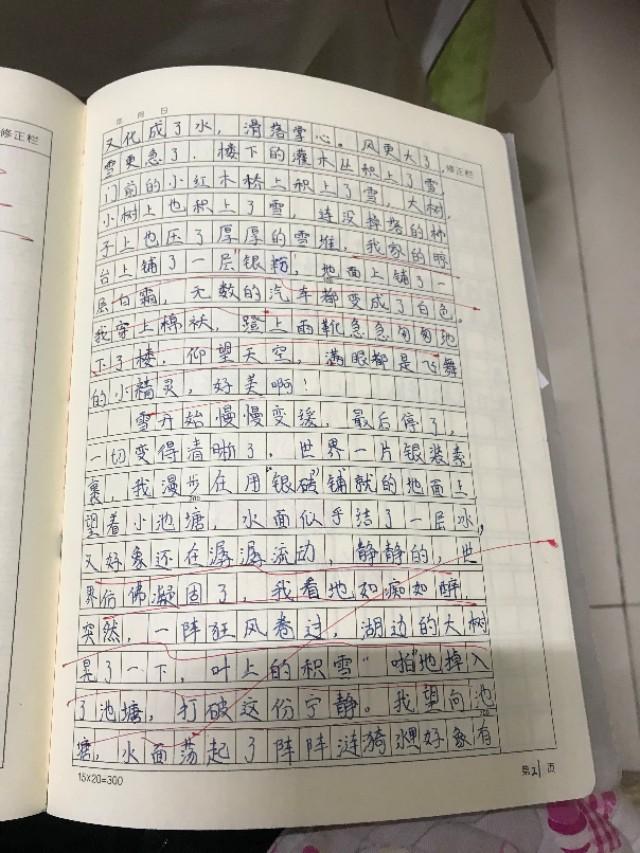 修正栏
年 月 日
修正栏
又化成了水，滑落掌心。风更大了，
雪更急了，楼下的灌木丛积上了雪，
门前的小红木桥上积上了雪，大树，
小树上也积上了雪，连没掉落的柿
子上也压了厚厚的雪堆，我家的晾
台上铺了一层银粉，地面上铺了一
层白霜，无数的汽车都变成了白色。
我穿上棉袄，蹬上雨靴急急匆匆地
下了楼，仰望天空，满眼都是飞舞
的小精灵，好美啊！
雪开始慢慢变缓，最后停了，
一切变得清晰了，世界一片银装素
裹，我漫步在用“银砖”铺就的地面上
望着小池塘，水面似乎结了一层冰，
又好象还在潺潺流动，静静的，世
界仿佛凝固了，我看地如痴如醉，
突然，一阵狂风卷过，湖边的大树
晃了一下，叶上的积雪“啪”地掉入
了池塘，打破这份宁静。我望向池
塘，水面荡起了阵阵涟漪，水里好象有
15×20=300
第21页